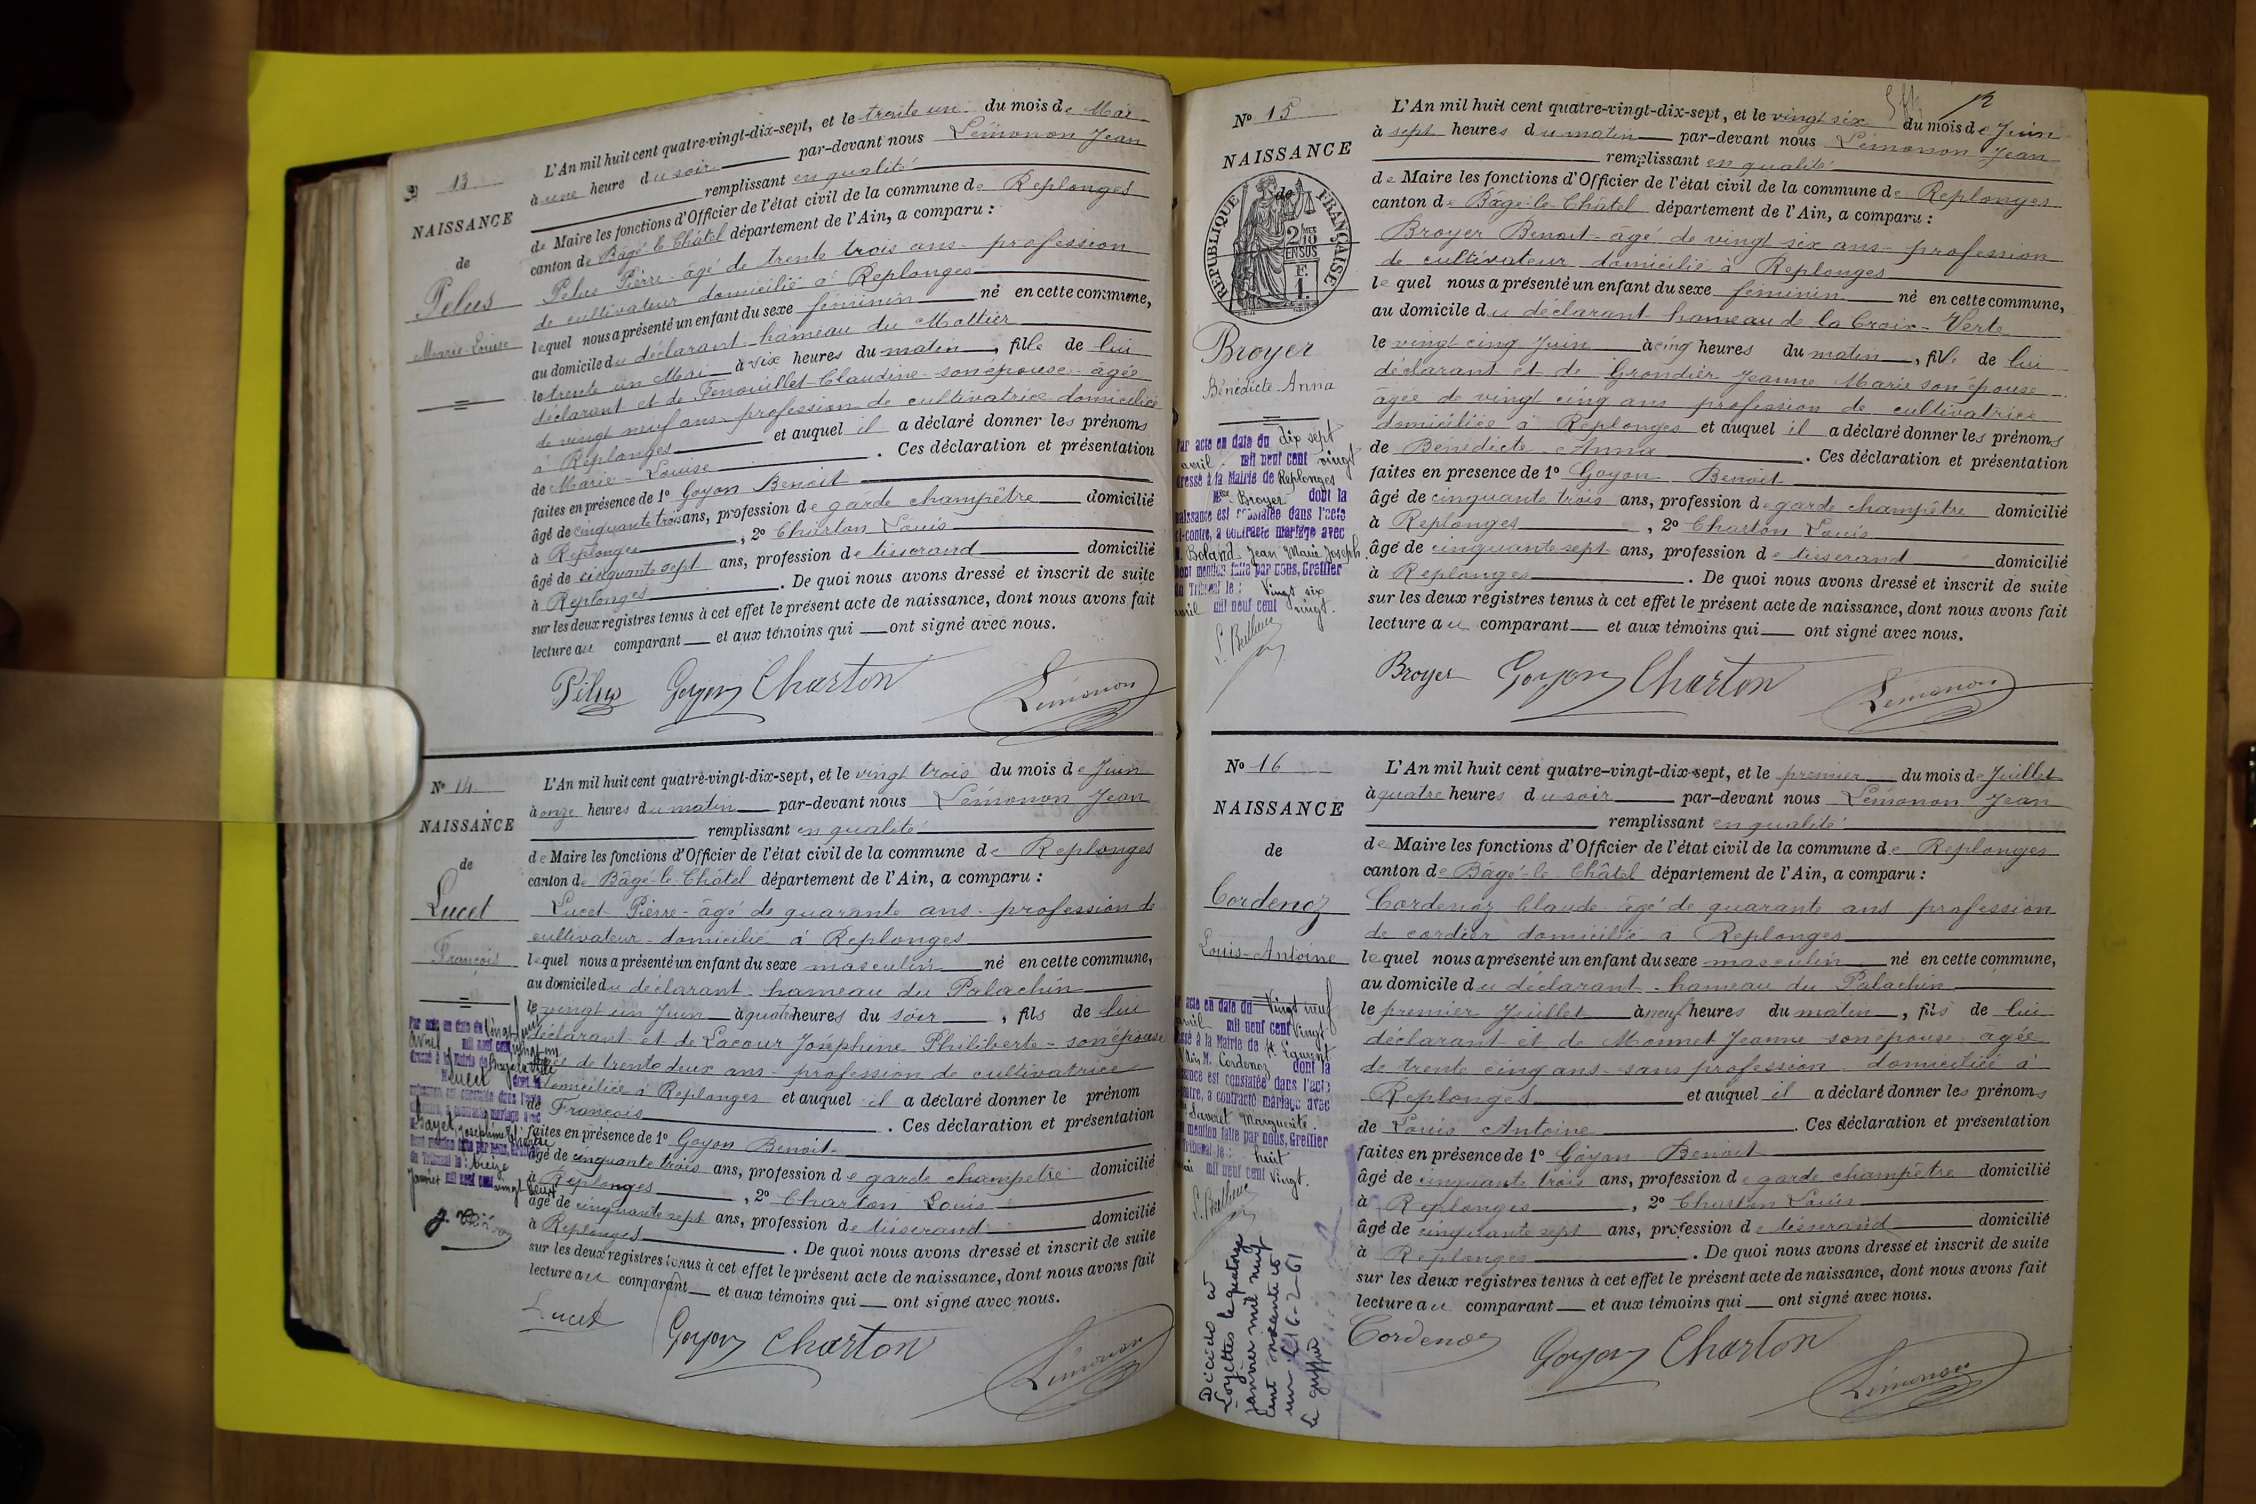 13
NAISSANCE
de
Pelus
Marie-Louise
L'An mil huit cent quatre-vingt-dix-sept, et le trente un du mois de Mai
à une heure du soir par-devant nous Lémonon Jean
remplissant en qualité
de Maire les fonctions d'Officier de l'état civil de la commune de Replonges
canton de Bâgé-le-Châtel département de l'Ain, a comparu :
Pelus Pierre âgé de trente trois ans profession
de cultivateur domicilié à Replonges
lequel nous a présenté un enfant du sexe féminin né en cette commune,
au domicile du déclarant hameau du Mottier
le trente un Mai à six heures du matin, fille de lui
déclarant et de Fenouillet Claudine son épouse âgée
de vingt neuf ans profession de cultivatrice domiciliée
à Replonges et auquel il a déclaré donner les prénoms
de Marie-Louise . Ces déclaration et présentation
faites en présence de 1º Goyon Benoit
âgé de cinquante trois ans, profession de garde champêtre domicilié
à Replonges, 2º Charton Louis
âgé de cinquante sept ans, profession de tisserand domicilié
à Replonges. De quoi nous avons dressé et inscrit de suite
sur les deux registres tenus à cet effet le présent acte de naissance, dont nous avons fait
lecture au comparant et aux témoins qui ont signé avec nous.
Pélus Goyon Charton Lémonon
Nº 14
NAISSANCE
de
Lucet
François
Par acte en date du vingt huit
avril mil neuf cent vingt un
dressé à la Mairie de Bagé la Ville
M Lucet dont la
naissance est constatée dans l'acte
ci-contre, a contracté mariage avec
Joséphine
Dont mention faite par nous, Greffier
du Tribunal le : treize
Janvier mil neuf cent vingt deux
L'An mil huit cent quatre-vingt-dix-sept, et le vingt trois du mois de Juin
à onze heures du matin par-devant nous Lémonon Jean
remplissant en qualité
de Maire les fonctions d'Officier de l'état civil de la commune de Replonges
canton de Bâgé-le-Châtel département de l'Ain, a comparu :
Lucet Pierre âgé de quarante ans profession de
cultivateur domicilié à Replonges
lequel nous a présenté un enfant du sexe masculin né en cette commune,
au domicile du déclarant hameau du Palachin
le vingt un Juin à quatre heures du soir, fils de lui
déclarant et de Lacour Joséphine Philiberte son épouse
âgée de trente deux ans profession de cultivatrice
domiciliée à Replonges et auquel il a déclaré donner le prénom
de François . Ces déclaration et présentation
faites en présence de 1º Goyon Benoit
âgé de cinquante trois ans, profession de garde champêtre domicilié
à Replonges, 2º Charton Louis
âgé de cinquante sept ans, profession de tisserand domicilié
à Replonges. De quoi nous avons dressé et inscrit de suite
sur les deux registres tenus à cet effet le présent acte de naissance, dont nous avons fait
lecture au comparant et aux témoins qui ont signé avec nous.
Lucet Goyon Charton Lémonon
12
Nº 15
NAISSANCE
de
RÉPUBLIQUE FRANÇAISE
2/10
EN SUS
F.
1.
Broyer
Bénédicte Anna
Par acte en date du dix sept
avril mil neuf cent vingt
dressé à la Mairie de Replonges
Broyer dont la
naissance est constatée dans l'acte
ci-contre, a contracté mariage avec
M. Boland Jean Marie Joseph
Dont mention faite par nous, Greffier
du Tribunal le : Vingt six
avril mil neuf cent vingt.
L'An mil huit cent quatre-vingt-dix-sept, et le vingt six du mois de Juin
à sept heures du matin par-devant nous Lémonon Jean
remplissant en qualité
de Maire les fonctions d'Officier de l'état civil de la commune de Replonges
canton de Bâgé-le-Châtel département de l'Ain, a comparu :
Broyer Benoit âgé de vingt six ans profession
de cultivateur domicilié à Replonges
lequel nous a présenté un enfant du sexe féminin né en cette commune,
au domicile du déclarant hameau de la Croix-Verte
le vingt cinq Juin à cinq heures du matin, fille de lui
déclarant et de Grondier Jeanne Marie son épouse
âgée de vingt cinq ans profession de cultivatrice
domiciliée à Replonges et auquel il a déclaré donner les prénoms
de Bénédicte Anna . Ces déclaration et présentation
faites en présence de 1º Goyon Benoit
âgé de cinquante trois ans, profession de garde champêtre domicilié
à Replonges, 2º Charton Louis
âgé de cinquante sept ans, profession de tisserand domicilié
à Replonges. De quoi nous avons dressé et inscrit de suite
sur les deux régistres tenus à cet effet le présent acte de naissance, dont nous avons fait
lecture au comparant et aux témoins qui ont signé avec nous.
Broyer Goyon Charton Lémonon
Nº 16
NAISSANCE
de
Cordenoz
Louis-Antoine
acte en date du Vingt neuf
avril mil neuf cent vingt
dressé à la Mairie de St Laurent
M. Cordenoz dont la
naissance est constatée dans l'acte
ci-contre, a contracté mariage avec
Marguerite.
mention faite par nous, Greffier
Tribunal le : huit
mai mil neuf cent vingt.
Décédé à
Loyettes le quatorze
janvier mil neuf
cent soixante et
un. L 16-2-61
Le greffier
L'An mil huit cent quatre-vingt-dix-sept, et le premier du mois de Juillet
à quatre heures du soir par-devant nous Lémonon Jean
remplissant en qualité
de Maire les fonctions d'Officier de l'état civil de la commune de Replonges
canton de Bâgé-le-Châtel département de l'Ain, a comparu :
Cordenoz Claude âgé de quarante ans profession
de cordier domicilié à Replonges
lequel nous a présenté un enfant du sexe masculin né en cette commune,
au domicile du déclarant hameau du Palachin
le premier Juillet à neuf heures du matin, fils de lui
déclarant et de Monnet Jeanne son épouse âgée
de trente cinq ans sans profession domiciliée à
Replonges et auquel il a déclaré donner les prénoms
de Louis Antoine . Ces déclaration et présentation
faites en présence de 1º Goyon Benoit
âgé de cinquante trois ans, profession de garde champêtre domicilié
à Replonges, 2º Charton Louis
âgé de cinquante sept ans, profession de tisserand domicilié
à Replonges. De quoi nous avons dressé et inscrit de suite
sur les deux régistres tenus à cet effet le présent acte de naissance, dont nous avons fait
lecture au comparant et aux témoins qui ont signé avec nous.
Cordenoz Goyon Charton Lémonon